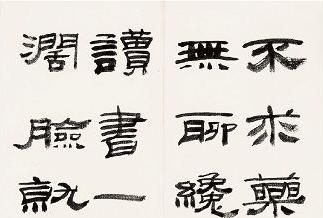 不求藥
無聊纔
讀書一
濶臉就